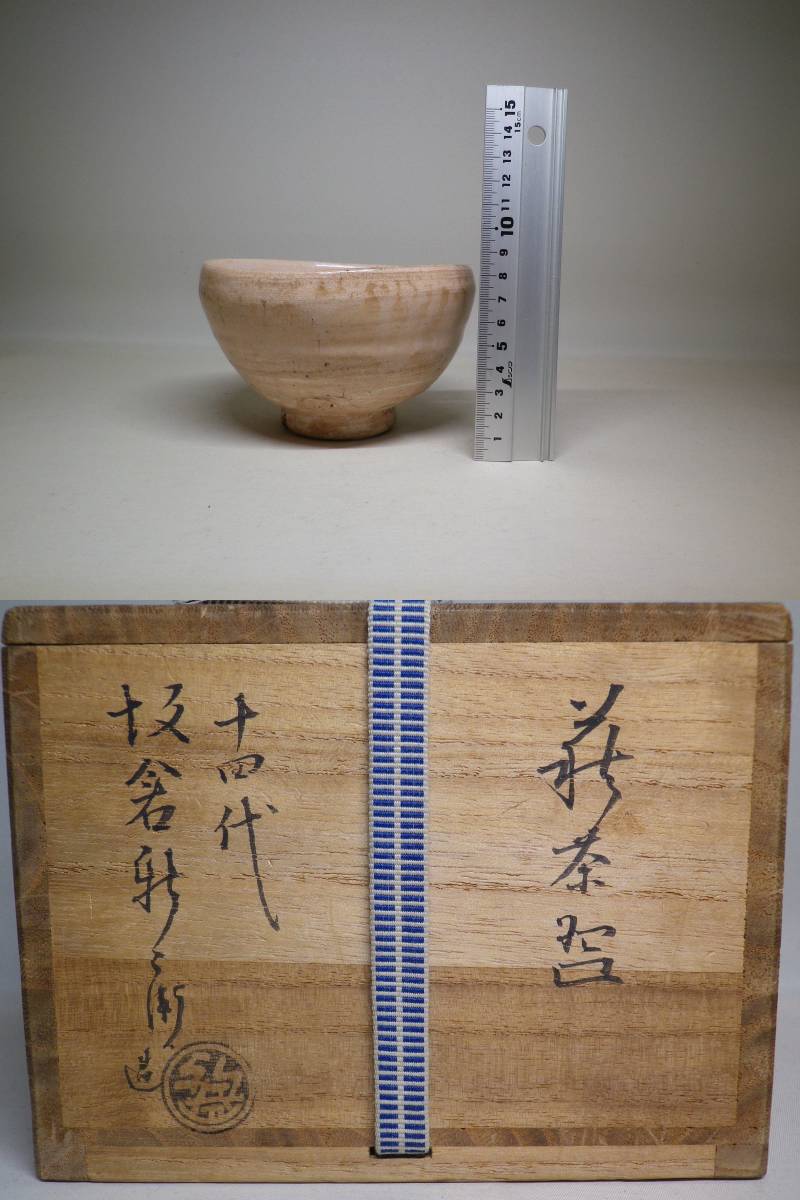 15
15cm
14
13
12
11
10
9
8
7
6
5
4
3
2
1
萩茶碗
十四代
坂倉新兵衛造